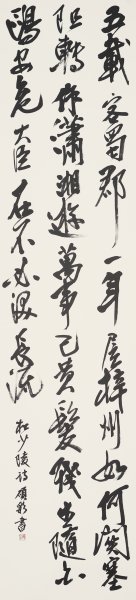 五載客蜀郡一年居梓州如何関塞
阻轉作瀟湘遊萬事已黃髮殘生隨白
鷗安危大臣在不必淚長流 杜少陵詩 書